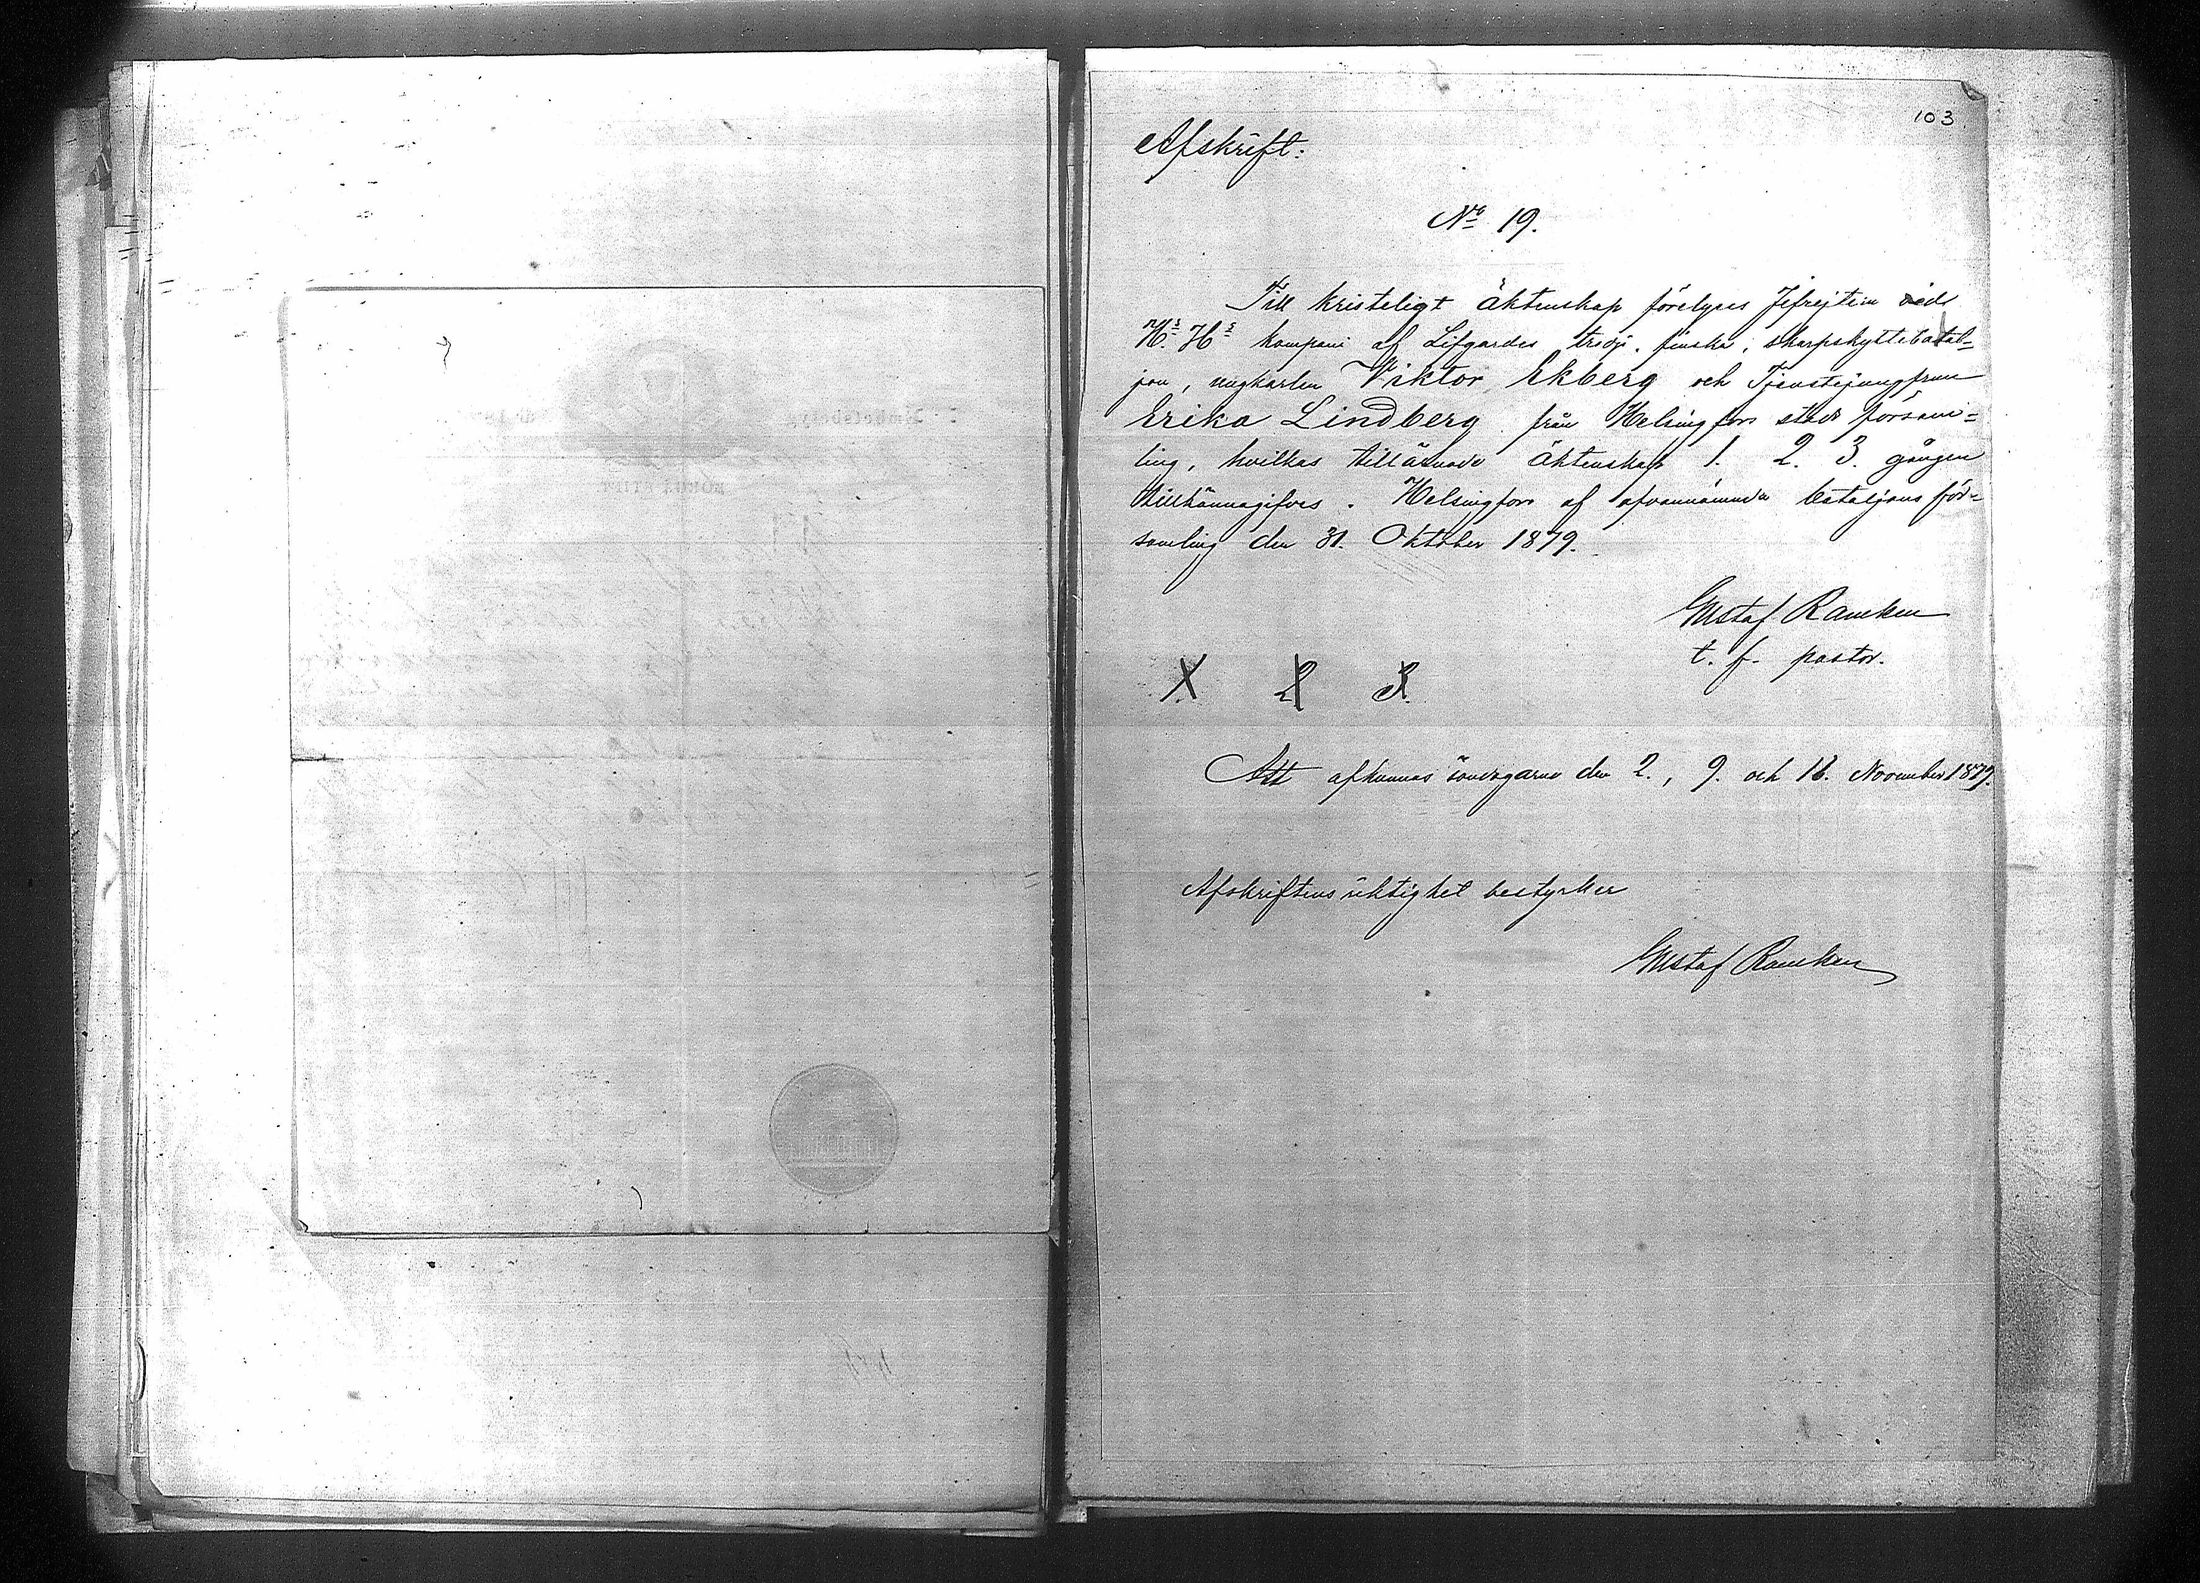 103
Afskrift:
No 19.
Till kristeligt äktenskap förelyses Jefrejtern vid
H.s H.s kompani af Lifgardes tredje finska skarpskyttebatal=
jon, ungkarlen Viktor Ekberg och Tjenstejungfrun
Erika Lindberg från Helsingfors stads försam=
ling, hvilkas tillärnade äktenskap 1. 2. 3. gången
tillkännagifves. Helsingfors af ofvannämnda bataljons för=
samling den 31. Oktober 1879.
Gustaf Rancken
t. f. pastor.
1. 2 3.
Att afkunnas söndagarne den 2., 9. och 16. November 1879.
Afskriftens riktighet bestyrker
Gustaf Rancken